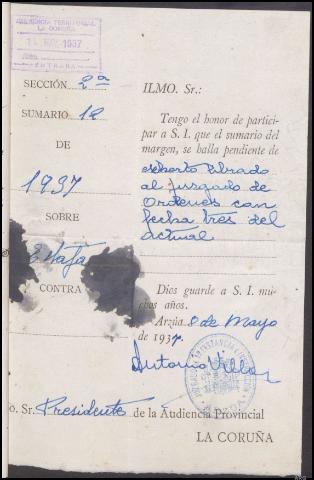 AUDIENCIA TERRITORIAL
LA CORUÑA
1937
ENTRADA
SECCIÓN 2ª
SUMARIO 12
DE
1937
SOBRE
Estafa
CONTRA
ILMO. Sr.:
Tengo el honor de partici-
par a S. I. que el sumario del
margen, se halla pendiente de
exhorto librado
al juzgado de
Ordenes con
fecha tres del
actual
Dios guarde a S. I. mu-
chos años.
Arzúa 8 de Mayo
de 1937.
Antonio Villar
o. Sr. Presidente de la Audiencia Provincial
LA CORUÑA